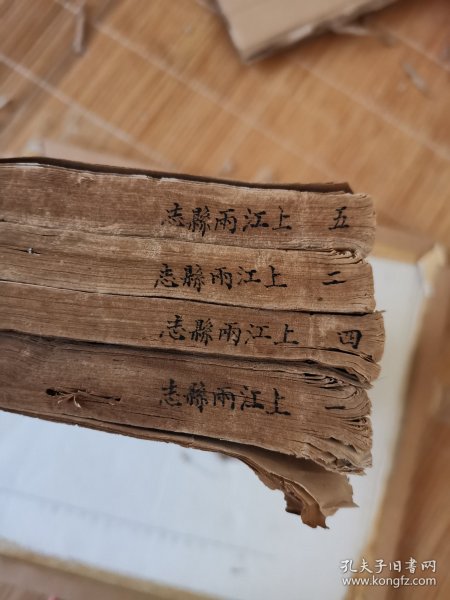 五 上江兩縣志
二 上江兩縣志
四 上江兩縣志
一 上江兩縣志
孔夫子旧书网
www.kongfz.com